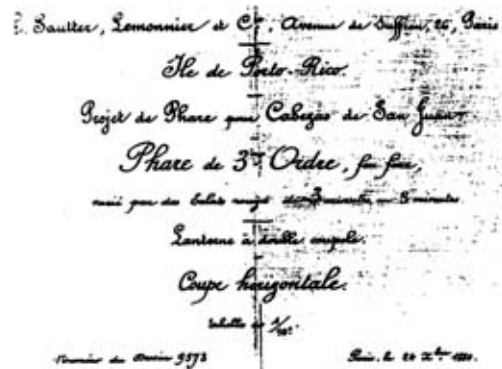 Sautter, Lemonnier et Cie, Avenue de Suffren, 26, Paris
Île de Porto-Rico.
Projet de Phare pour Cabezas de San Juan
Phare de 3me Ordre, feu fixe,
varié par des Eclats rouges de 3 minutes en 3 minutes
Lanterne à double coupole.
Coupe horizontale.
Echelle de
Numéro du Dessin 9573
Paris, le 24 Xbre